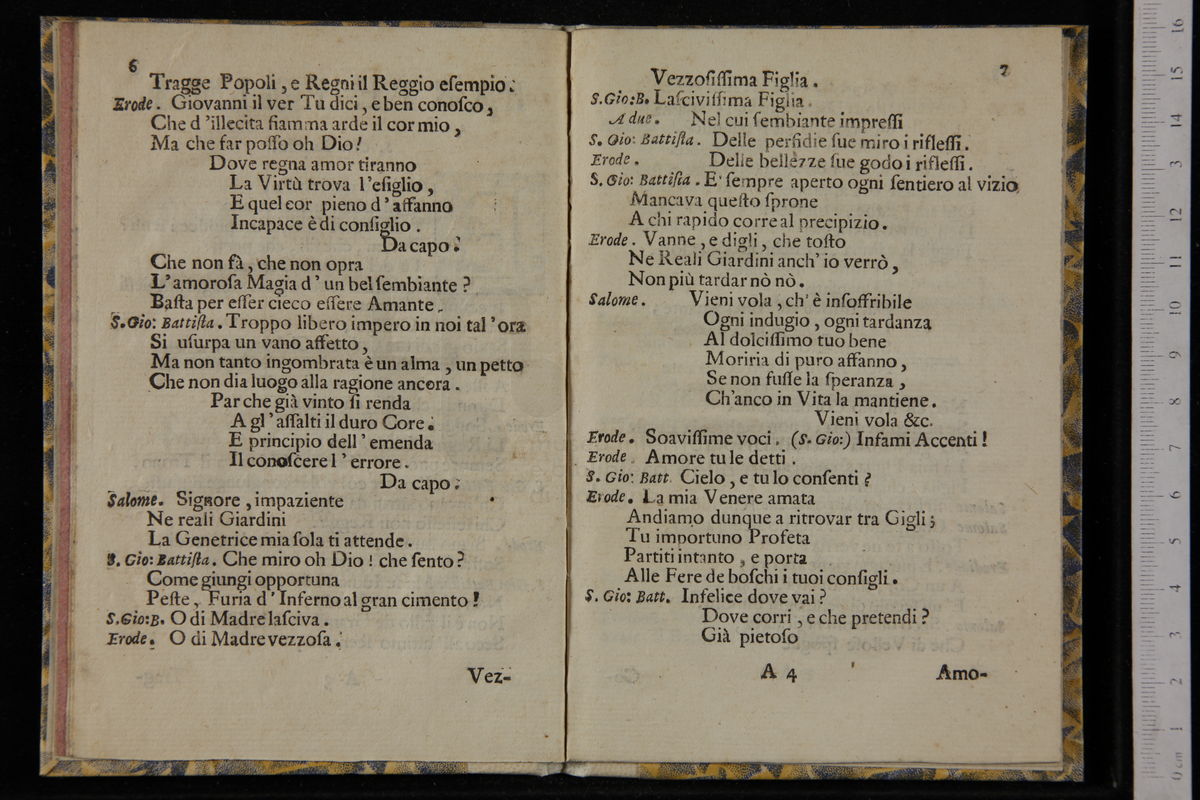 6
Tragge Popoli , e Regni il Reggio eſempio.
Erode. Giovanni il ver Tu dici , e ben conoſco ,
Che d 'illecita fiamma arde il cor mio ,
Ma che far poſſo oh Dio!
Dove regna amor tiranno
La Virtù trova l'eſiglio ,
E quel cor pieno d' affanno
Incapace è di conſiglio .
Da capo.
Che non fà , che non opra
L' amoroſa Magia d' un bel ſembiante ?
Baſta per eſſer cieco eſſere Amante .
S. Gio: Battiſta . Troppo libero impero in noi tal 'ora
Si uſurpa un vano affetto ,
Ma non tanto ingombrata è un alma , un petto
Che non dia luogo alla ragione ancora .
Par che già vinto ſi renda
A gl ' aſſalti il duro Core.
E principio dell ' emenda
Il conoſcere l ' errore .
Da capo.
Salome. Signore , impaziente
Ne reali Giardini
La Genetrice mia ſola ti attende .
S. Gio: Battiſta . Che miro oh Dio ! che ſento ?
Come giungi opportuna
Peſte , Furia d' Inferno al gran cimento !
S. Gio: B. O di Madre laſciva .
Erode. O di Madre vezzoſa .
Vez-
7
Vezzoſiſſima Figlia .
S. Gio: B. Laſciviſſima Figlia .
A due. Nel cui ſembiante impreſſi
S. Gio: Battiſta . Delle perfidie ſue miro i rifleſſi .
Erode . Delle bellezze ſue godo i rifleſſi .
S. Gio: Battiſta . E' ſempre aperto ogni ſentiero al vizio
Mancava queſto ſprone
A chi rapido corre al precipizio .
Erode . Vanne , e digli , che toſto
Ne Reali Giardini anch' io verrò ,
Non più tardar nò nò .
Salome. Vieni vola , ch' è inſoffribile
Ogni indugio , ogni tardanza
Al dolciſſimo tuo bene
Moriria di puro affanno ,
Se non fuſſe la ſperanza ,
Ch'anco in Vita la mantiene .
Vieni vola &c.
Erode. Soaviſſime voci . (S. Gio:) Infami Accenti !
Erode . Amore tu le detti .
S. Gio: Batt. Cielo , e tu lo conſenti ?
Erode. La mia Venere amata
Andiamo dunque a ritrovar tra Gigli ;
Tu importuno Profeta
Partiti intanto , e porta
Alle Fere de boſchi i tuoi conſigli .
S. Gio: Batt. Infelice dove vai ?
Dove corri , e che pretendi ?
Già pietoſo
A 4
Amo-
16
15
14
13
12
11
10
9
8
7
6
5
4
3
2
1
0 cm